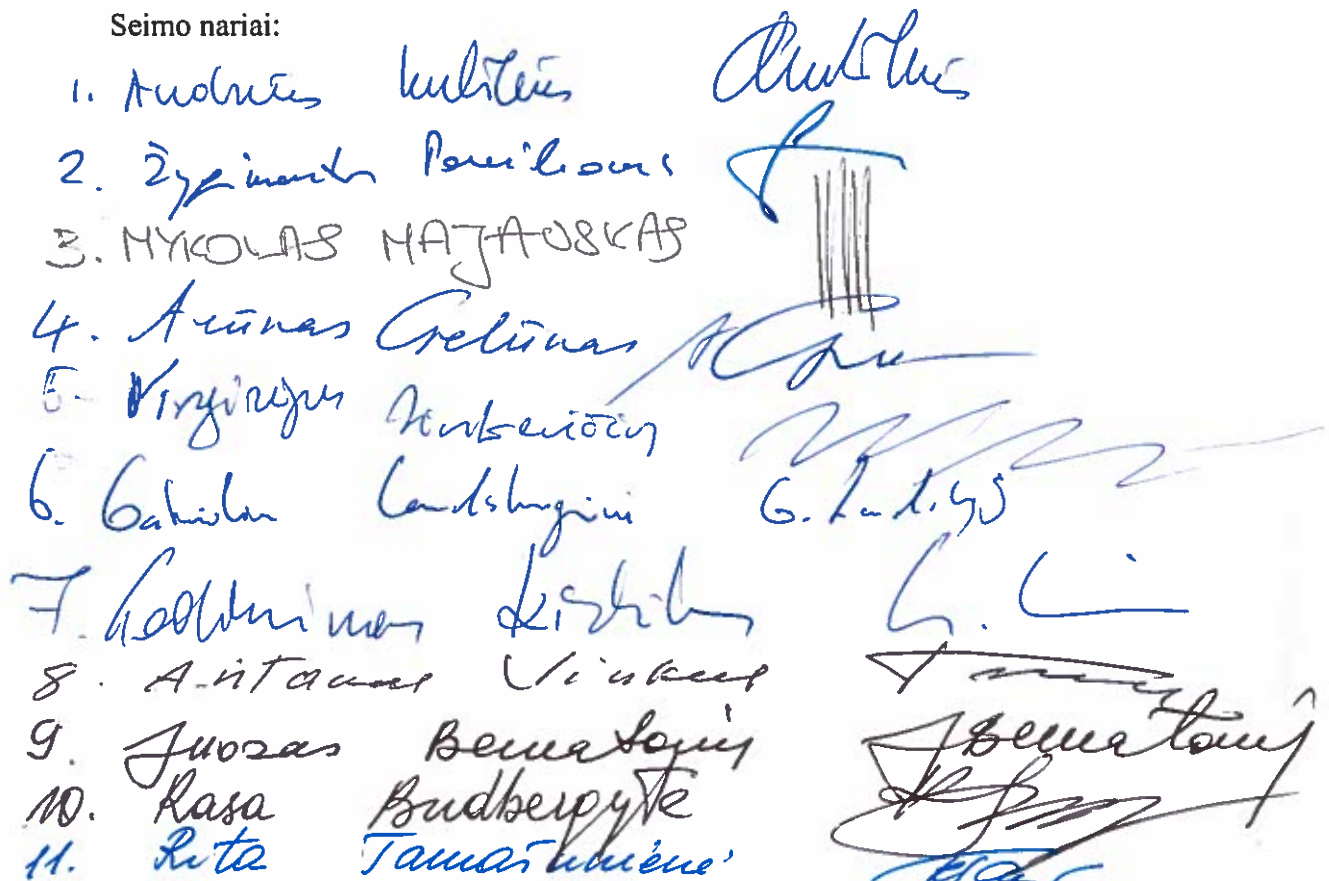 Seimo nariai:
1. Andrius Kubilius
2. Žygimantas Pavilionis
3. MYKOLAS MAJAUSKAS
4. Arūnas Gelūnas
5. Virginijus Sinkevičius
6. Gabrielius Landsbergis
7. Gediminas Kirkilas
8. Antanas Vinkus
9. Juozas Bernatonis JBernatonis
10. Rasa Budbergytė
11. Rita Tamašunienė